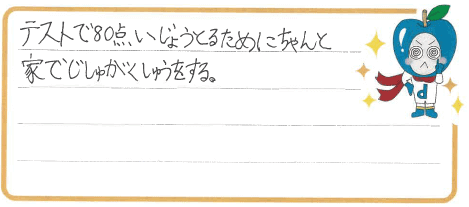 テストで80点いじょうとるためにちゃんと
家でじしゅがくしゅうをする。
d